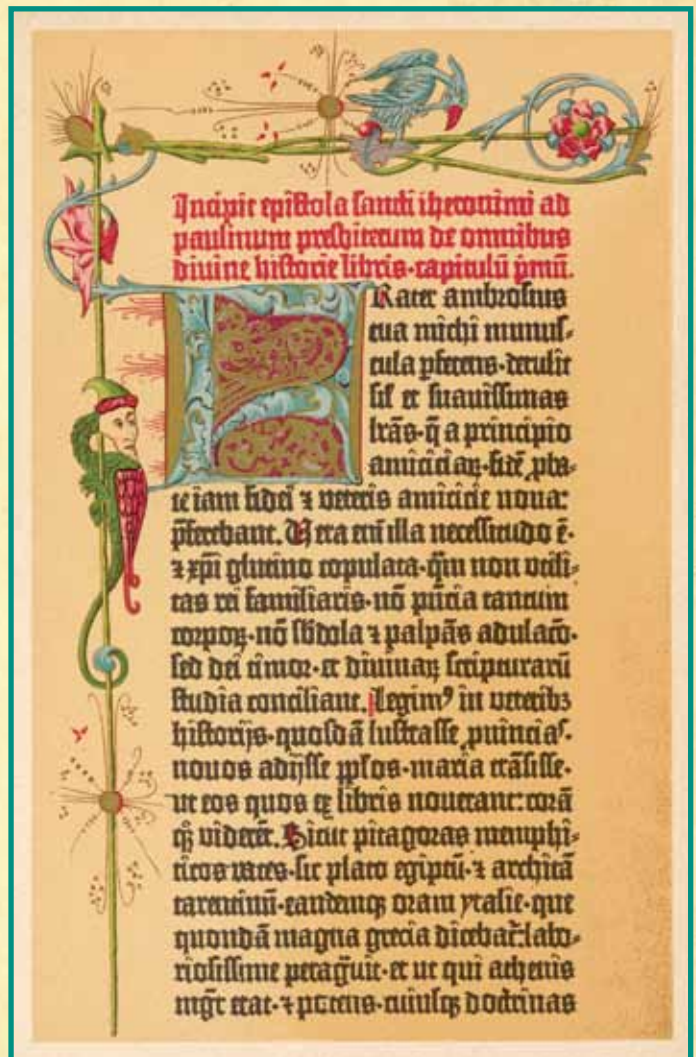 Incipit epistola sancti iheronimi ad
paulinum presbiterum de omnibus
divine historie libris·capitulū pmū.
FRater ambrosius
tua michi munus-
cula pferens·detulit
sil̄ et suavissimas
lr̄as·q̄ a principio
amiciciaꝝ·fidē pba-
te iam fidei ⁊ veteris amicicie nova:
pferebant. Vera eni̅ illa necessitudo ē·
⁊ xp̄i glutino copulata·qm̄ non utili-
tas rei familiaris·nō pn̄cia tantum
corporꝝ·nō sb̄dola ⁊ palpās adulacō·
sed dei timor·et divinaꝝ scripturarū
studia conciliant. Legim⁹ in veteribꝫ
historijs·quosdā lustrasse puincias·
novos adijsse pp̄los·maria trāsisse·
ut eos quos ex libris noverant: corā
qꝫ viderēt. Sicut pitagoras memphi-
ticos vates·sic plato egiptū·⁊ architā
tarentinū·eandemqꝫ oram ytalie·que
quondā magna grecia dicebat̄: labo-
riosissime peragūit·et ut qui athenis
mgr̄ erat·⁊ potens·cuiusqꝫ doctrinas